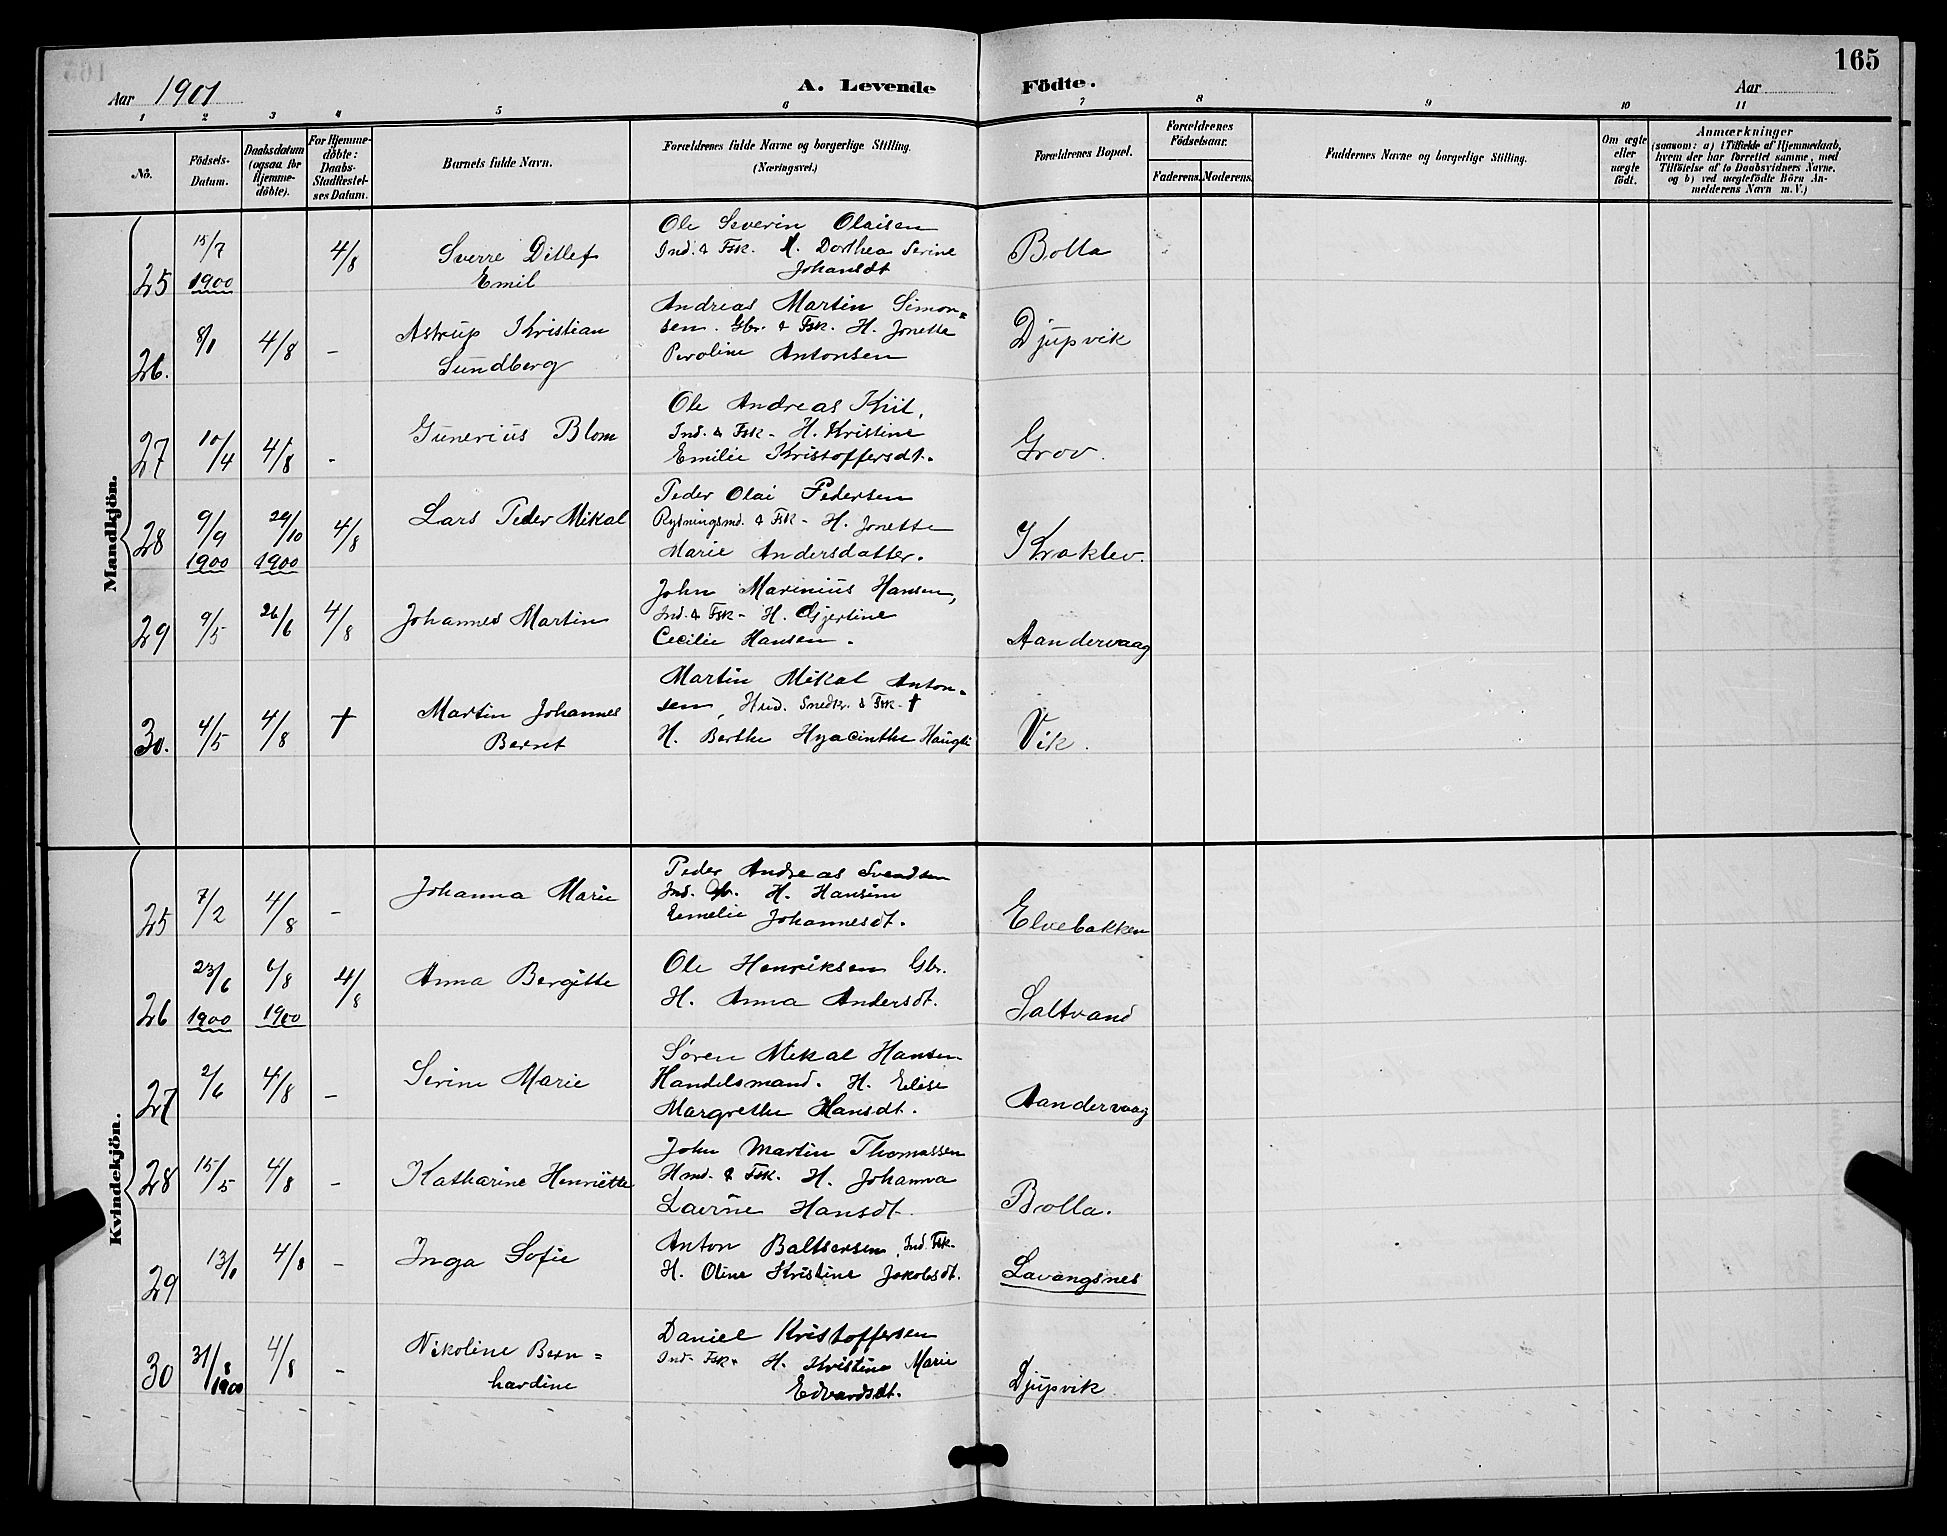 165
Aar 1901
A. Levende Födte.
Aar
1 2 3 4 5 6 7 8 9 10 11
No.
Födsels-Datum.
Daabsdatum (ogsaa for Hjemme-döbte).
For Hjemme-döbte: Daabs-Stadfæstel-ses Datum.
Barnets fulde Navn.
Forældrenes fulde Navne og borgerlige Stilling. (Næringsvei.)
Forældrenes Bopæl.
Forældrenes Födselsaar.
Faderens. Moderens.
Faddernes Navne og borgerlige Stilling.
Om ægte eller uægte født.
Anmærkninger
(saasom: a) i Tilfælde af Hjemmedaab,
hvem der har forrettet samme, med
Tilföielse af to Daabsvidners Navne,
og b) ved uægtefödte Börn An-
melderens Navn m. V.)
Mandkjön.
25 15/7 1900 4/8 Sverre Ditlef Emil
Ole Severin Olaisen
Ind. & Fsk. H. Dorthea Serine
Johansdt
Bolla
26. 8/1 4/8 - Astrup Kristian Sundberg
Andreas Martin Simon=
sen. Gbr. & Fsk. H. Jonette
Peroline Antonsen
Djupvik
27 10/4 4/8 - Gunerius Blom
Ole Andreas Kiil,
Ind. & Fsk - H. Kristine
Emilie Kristoffersdt.
Grov.
28 9/9 1900 29/10 1900 4/8 Lars Peder Mikal
Peder Olai Pedersen
Rydningsmd. & Fsk - H. Jonette
Marie Andersdatter.
Kraklev.
29 9/5 26/6 4/8 Johannes Martin
John Marinius Hansen,
Ind. & Fsk - H. Gjertine
Cecilie Hansen.
Aandervaag
30. 4/5 4/8 † Martin Johannes Bernt
Martin Mikal Anton-
sen, Hud. Snedkr. & Fsk - †
H. Berthe Hyacinthe Haugli
Vik.
Kvindekjön.
25 7/2 4/8 - Johanna Marie
Peder Andreas Svendsen
Ind. H. Hansine
Emelie Johannesdt.
Elvebakken
26 23/6 1900 6/8 1900 4/8 Anna Bergitte
Ole Henriksen Gbr.
H. Anna Andersdt.
Saltvand
27 2/6 4/8 - Serine Marie
Søren Mikal Hansen
Handelsmand. H. Elise
Margrethe Hansdt.
Aandervaag
28 15/5 4/8 - Katharine Henriette
John Martin Thomassen
Hmd. & Fsk. H. Johanna
Laerne Hansdt.
Bolla.
29 13/1 4/8 - Inga Sofie
Anton Baltsersen, Ind. Fsk.
H. Oline Kristine Jakobsdt.
Lavangsnes
30 31/8 1900 4/8 - Nikoline Bern=
hardine
Daniel Kristoffersen
Ind. Fsk. H. Kristine Marie
Edvardsdt.
Djupvik